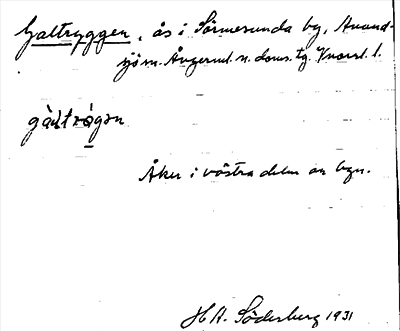 Galtryggen, ås i Sörmesunda by, Anund-
sjö sn. Ångerml. n. doms. tg. Vnorrl. l.
gàltrøgən
Åker i västra delen av byn.
H A. Söderberg 1931